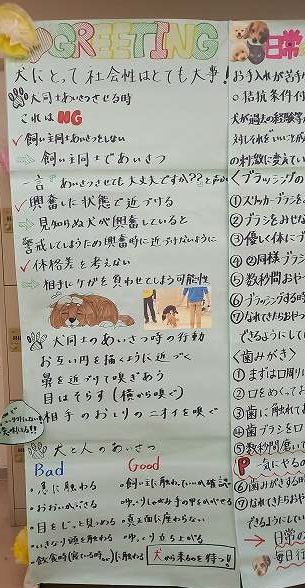 GREETING
犬にとって社会性はとても大事!
犬同士あいさつさせる時
これはNG
✓飼い主同士あいさつをしない
⇒飼い主同士であいさつ
一言"あいさつさせても大丈夫ですか??と声かけ
✓興奮した状態で近づける
⇒見知らぬ犬が興奮していると
警戒してしまうため興奮時に近づけないように
✓体格差を考えない
⇒相手にケガを負わせてしまう可能性
犬同士のあいさつ時の行動
お互い円を描くように近づく
鼻を近づけて嗅ぎあう
目はそらす(横から嗅ぐ)
相手のおしりのニオイを嗅ぐ
犬と人のあいさつ
Bad
・急に触わる
・おおいかぶさる
・目をじっと見つめる
・いきなり頭を触わる
Good
・飼い主に触わっていいか確認
・ゆっくりしゃがみ手の甲をかがせる
・真正面に座わらない
・ゆっくり立ち上がる
犬から来るのを待つ!!
日常
お手入れが苦手
○拮抗条件付
犬が過去の経験等
対しそれをいい
の刺激に変えてい
<ブラッシングの
①スリッカーブラシ
②ブラシをみせな
③優しく体にブ
④②同様ブラシ
⑤数秒間おや
⑥ブラッシングする時
⑦なれてきたらおやつ
できるようにして
<歯みがき>
①まずは口周り
②口をめくってお
③歯に触れてお
④歯ブラシを口
⑤数秒間磨いて
P 一気にやる
⑥歯みがきする時
⑦なれてきたらおやつ
できるようにしてい
→日常の
毎日